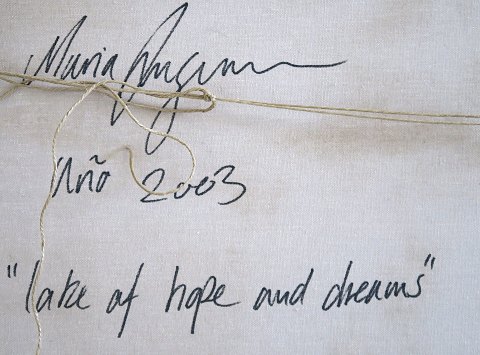 Maria
Año 2003
"lake of hope and dreams"